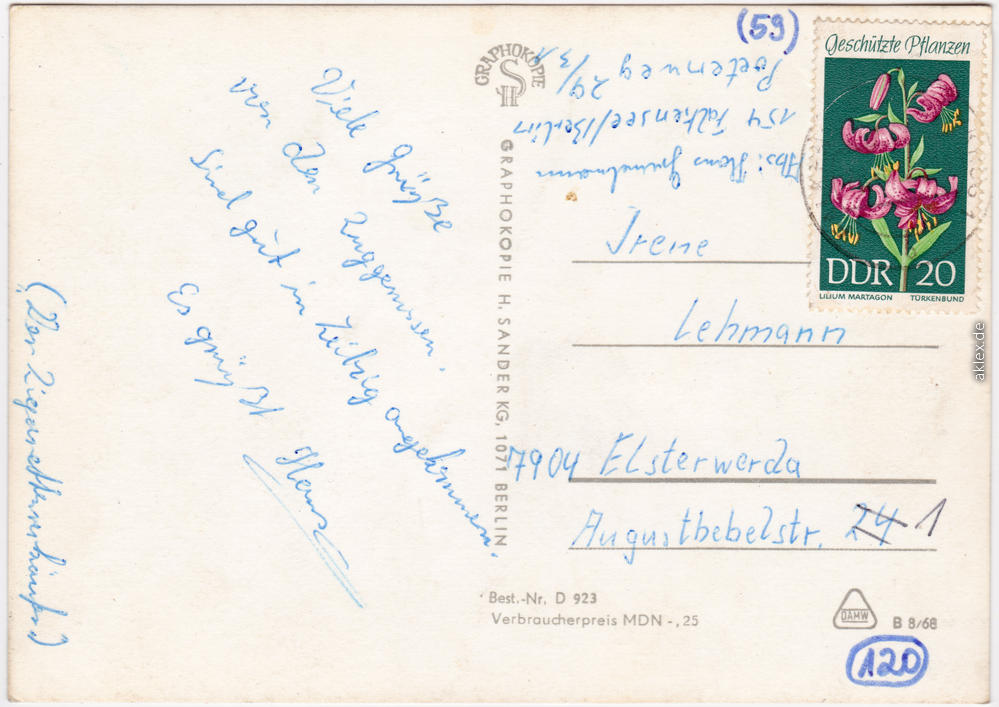 Viele Grüße
von den Zuggenossen.
Sind gut in Leibzig angekommen.
Es grüßt Hans
(Der Zigarettenverkäufer)
GRAPHOKOPIE
H S
GRAPHOKOPIE H. SANDER KG, 1071 BERLIN
(59)
Abs: Hans
154 Falkensee/Berlin
Poetenweg 29/31
Geschützte Pflanzen
DDR 20
LILIUM MARTAGON TÜRKENBUND
Irene
Lehmann
7904 Elsterwerda
Augustbebelstr. 24 1
Best.-Nr. D 923
Verbraucherpreis MDN -,25
DAMW
B 8/68
120
aklex.de